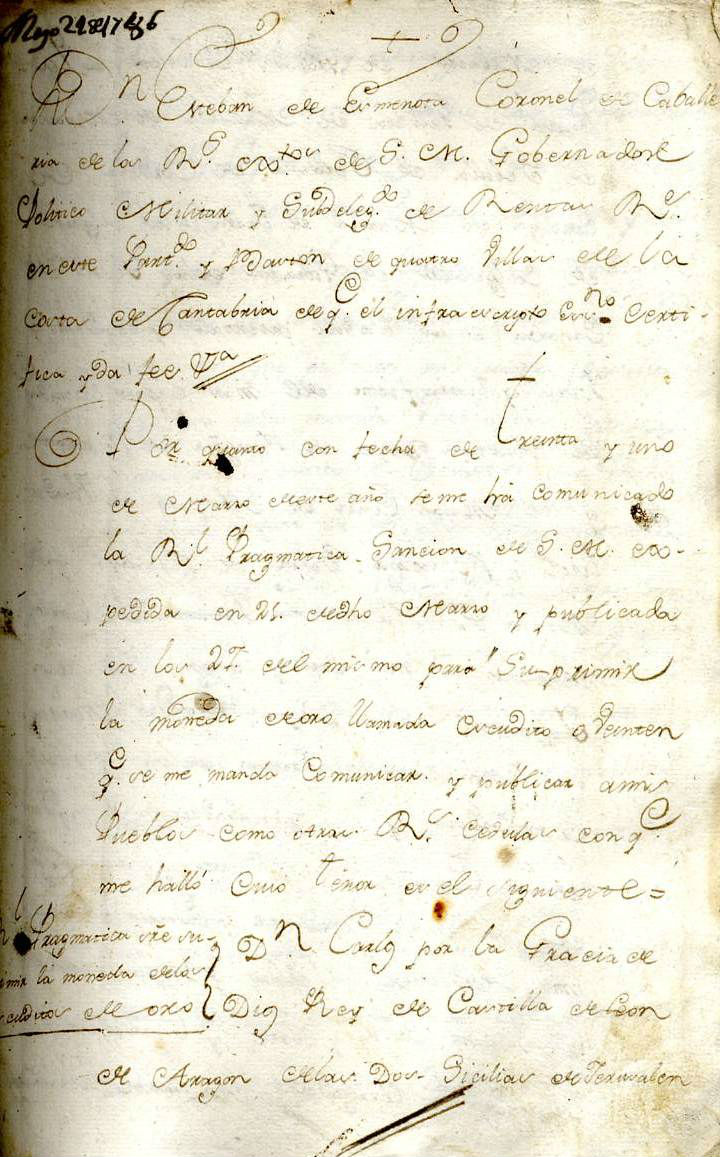 Mayo 21 de 1786
Dn Esteban de Esmenota Coronel de Caballe
ria de los Rs. exto.s de S. M. Gobernador
Politico Militar y Subdeleg.do de Rentas Rs.
en este Part.do y Baston de quatro Villas de la
Costa de Cantabria de q.e el infraescripto Essno Certi-
fica y da fee Va
Por quanto con fecha de treinta y uno
de Marzo de este año se me há comunicado
la Rl Pragmatica Sancion de S. M. ex-
pedida en 21. de dho Marzo y publicada
en los 27. del mismo para Suprimir
la moneda de oro llamada Escudito o Veinten
q.e se me manda Comunicar y publicar a mis
Pueblos como otras Rs. Cedulas con q.e
me halló Cuio tenor es el siguiente=
Pragmatica sre su-
imir la moneda de los
escuditos de oro
Dn Carlos por la Gracia de
Dios Rey de Castilla de Leon
de Aragon de las Dos Sicilias de Jerusalen